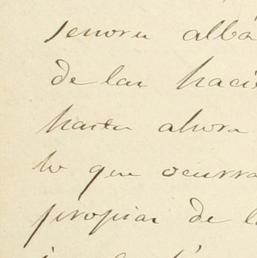 senora albá
de las haci
hasta ahora
lo que ocurra
propias de l